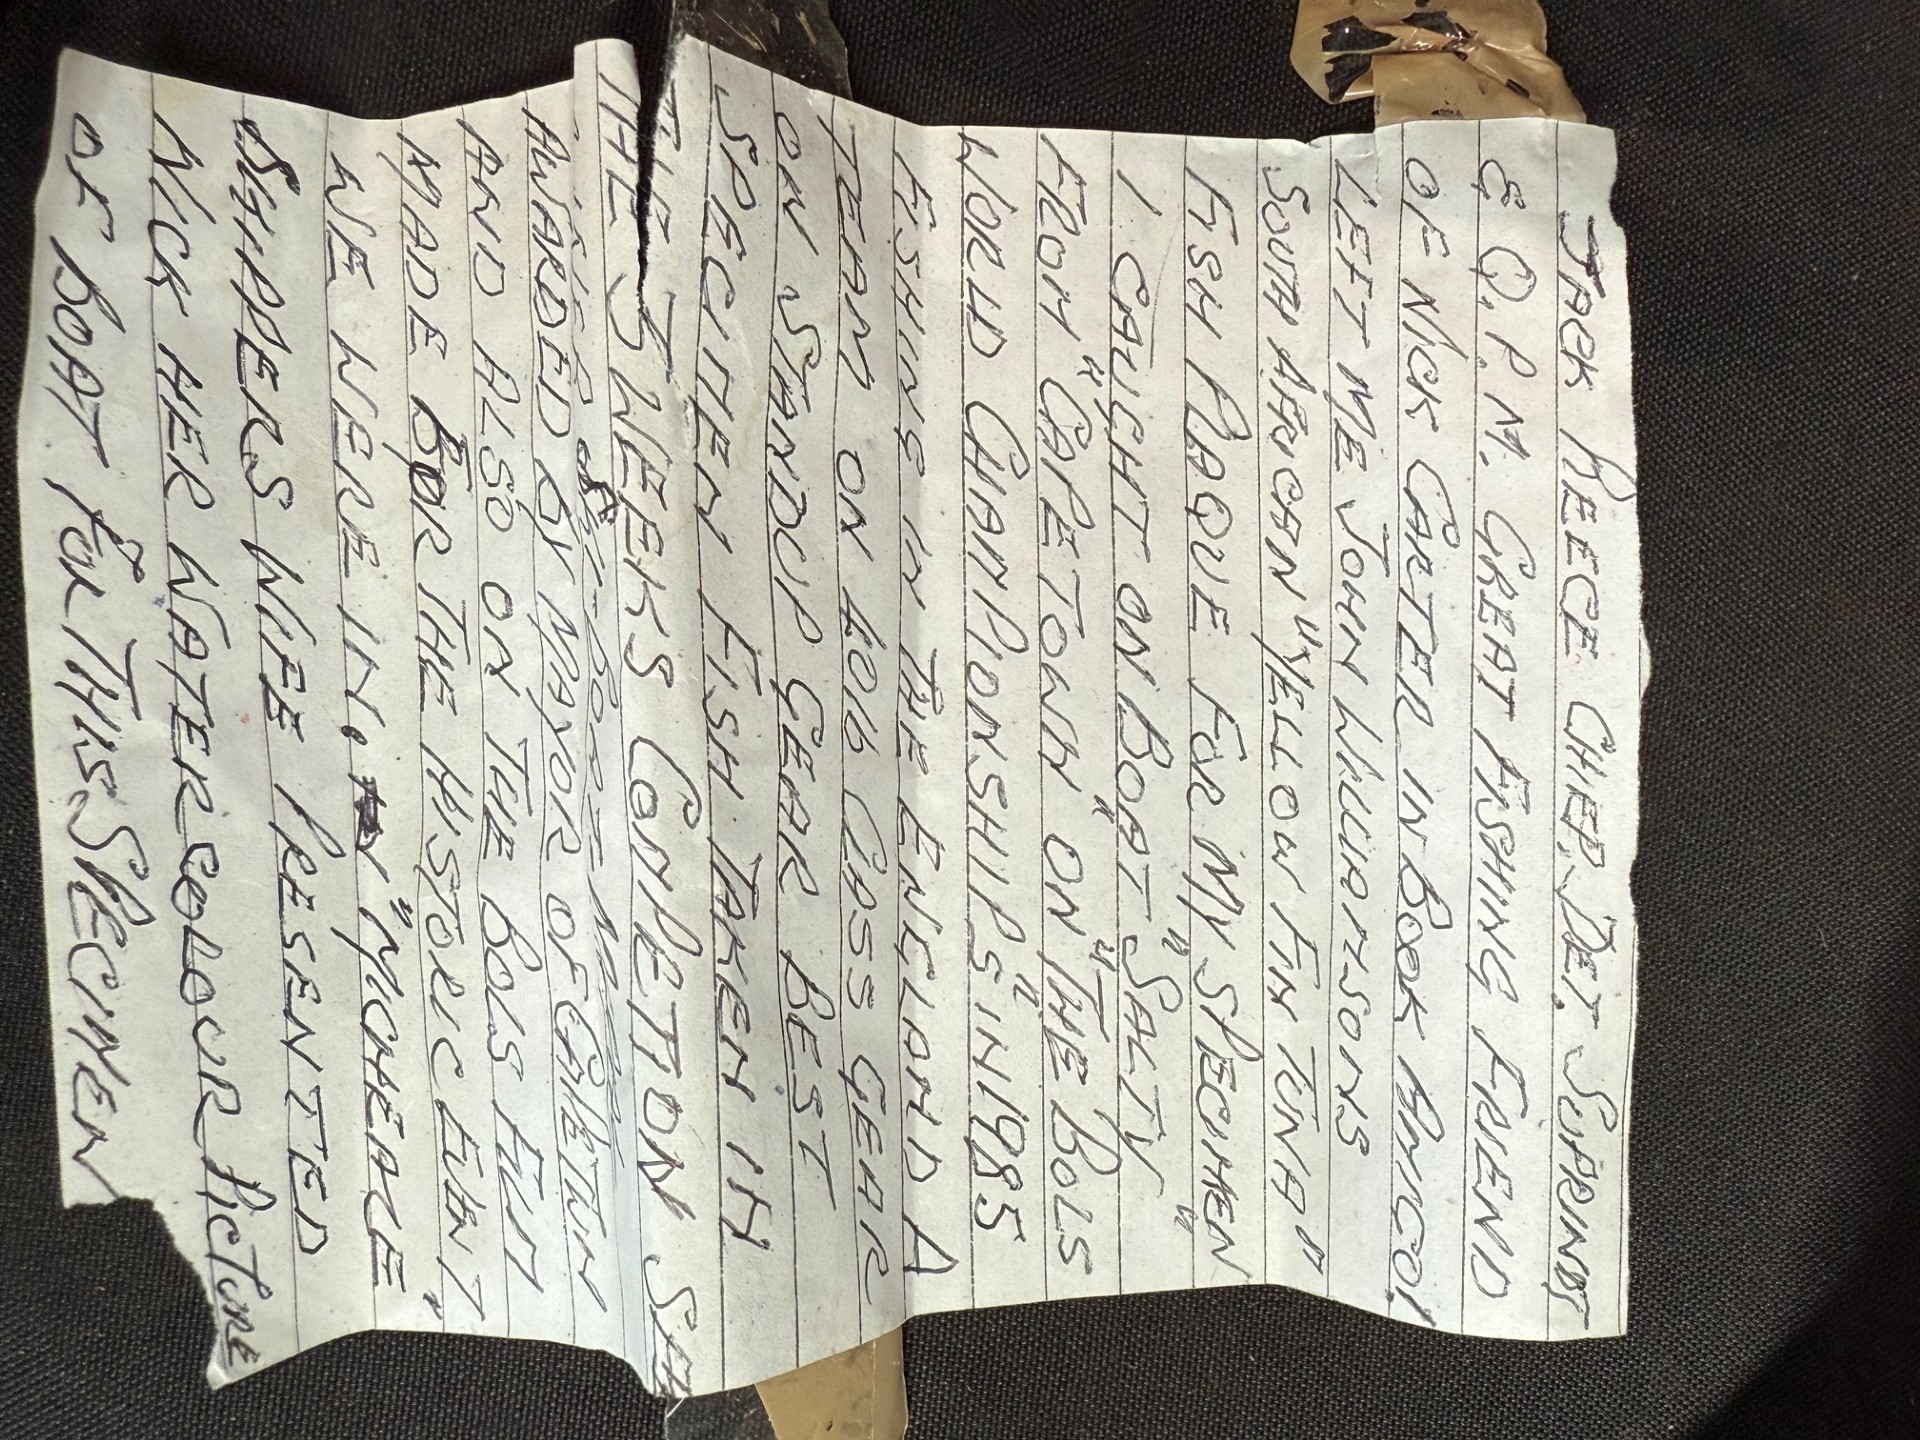 JACK REECE CHIEF. DET. SUPRINDT
& Q.P.M. GREAT FISHING FRIEND
OF NICK CARTER IN BOOK
LEFT ME JOHN WILLIAMSONS
SOUTH AFRICAN "YELLOW FIN TUNA"
FISH PLAQUE FOR MY SPECIMEN
I CAUGHT ON BOAT "SALTY"
FROM "CAPETOWN" ON "THE BOLS
WORLD CHAMPIONSHIPS" IN 1985
FISHING IN THE ENGLAND A
TEAM ON 40lb CLASS GEAR
ON STANDUP GEAR BEST
SPECIMEN FISH TAKEN IN
THE 3 WEEKS COMPETITON
AWARDED BY MAYOR OF CAPETWN
AND ALSO ON THE BOLS FILM
MADE FOR THE HISTORIC EVENT
WE WERE IN. "MICHEALE"
SHIPPERS WIFE PRESENTED
NICK HER WATER COLOUR PICTURE
OF BOAT FOR THIS SPECIMEN